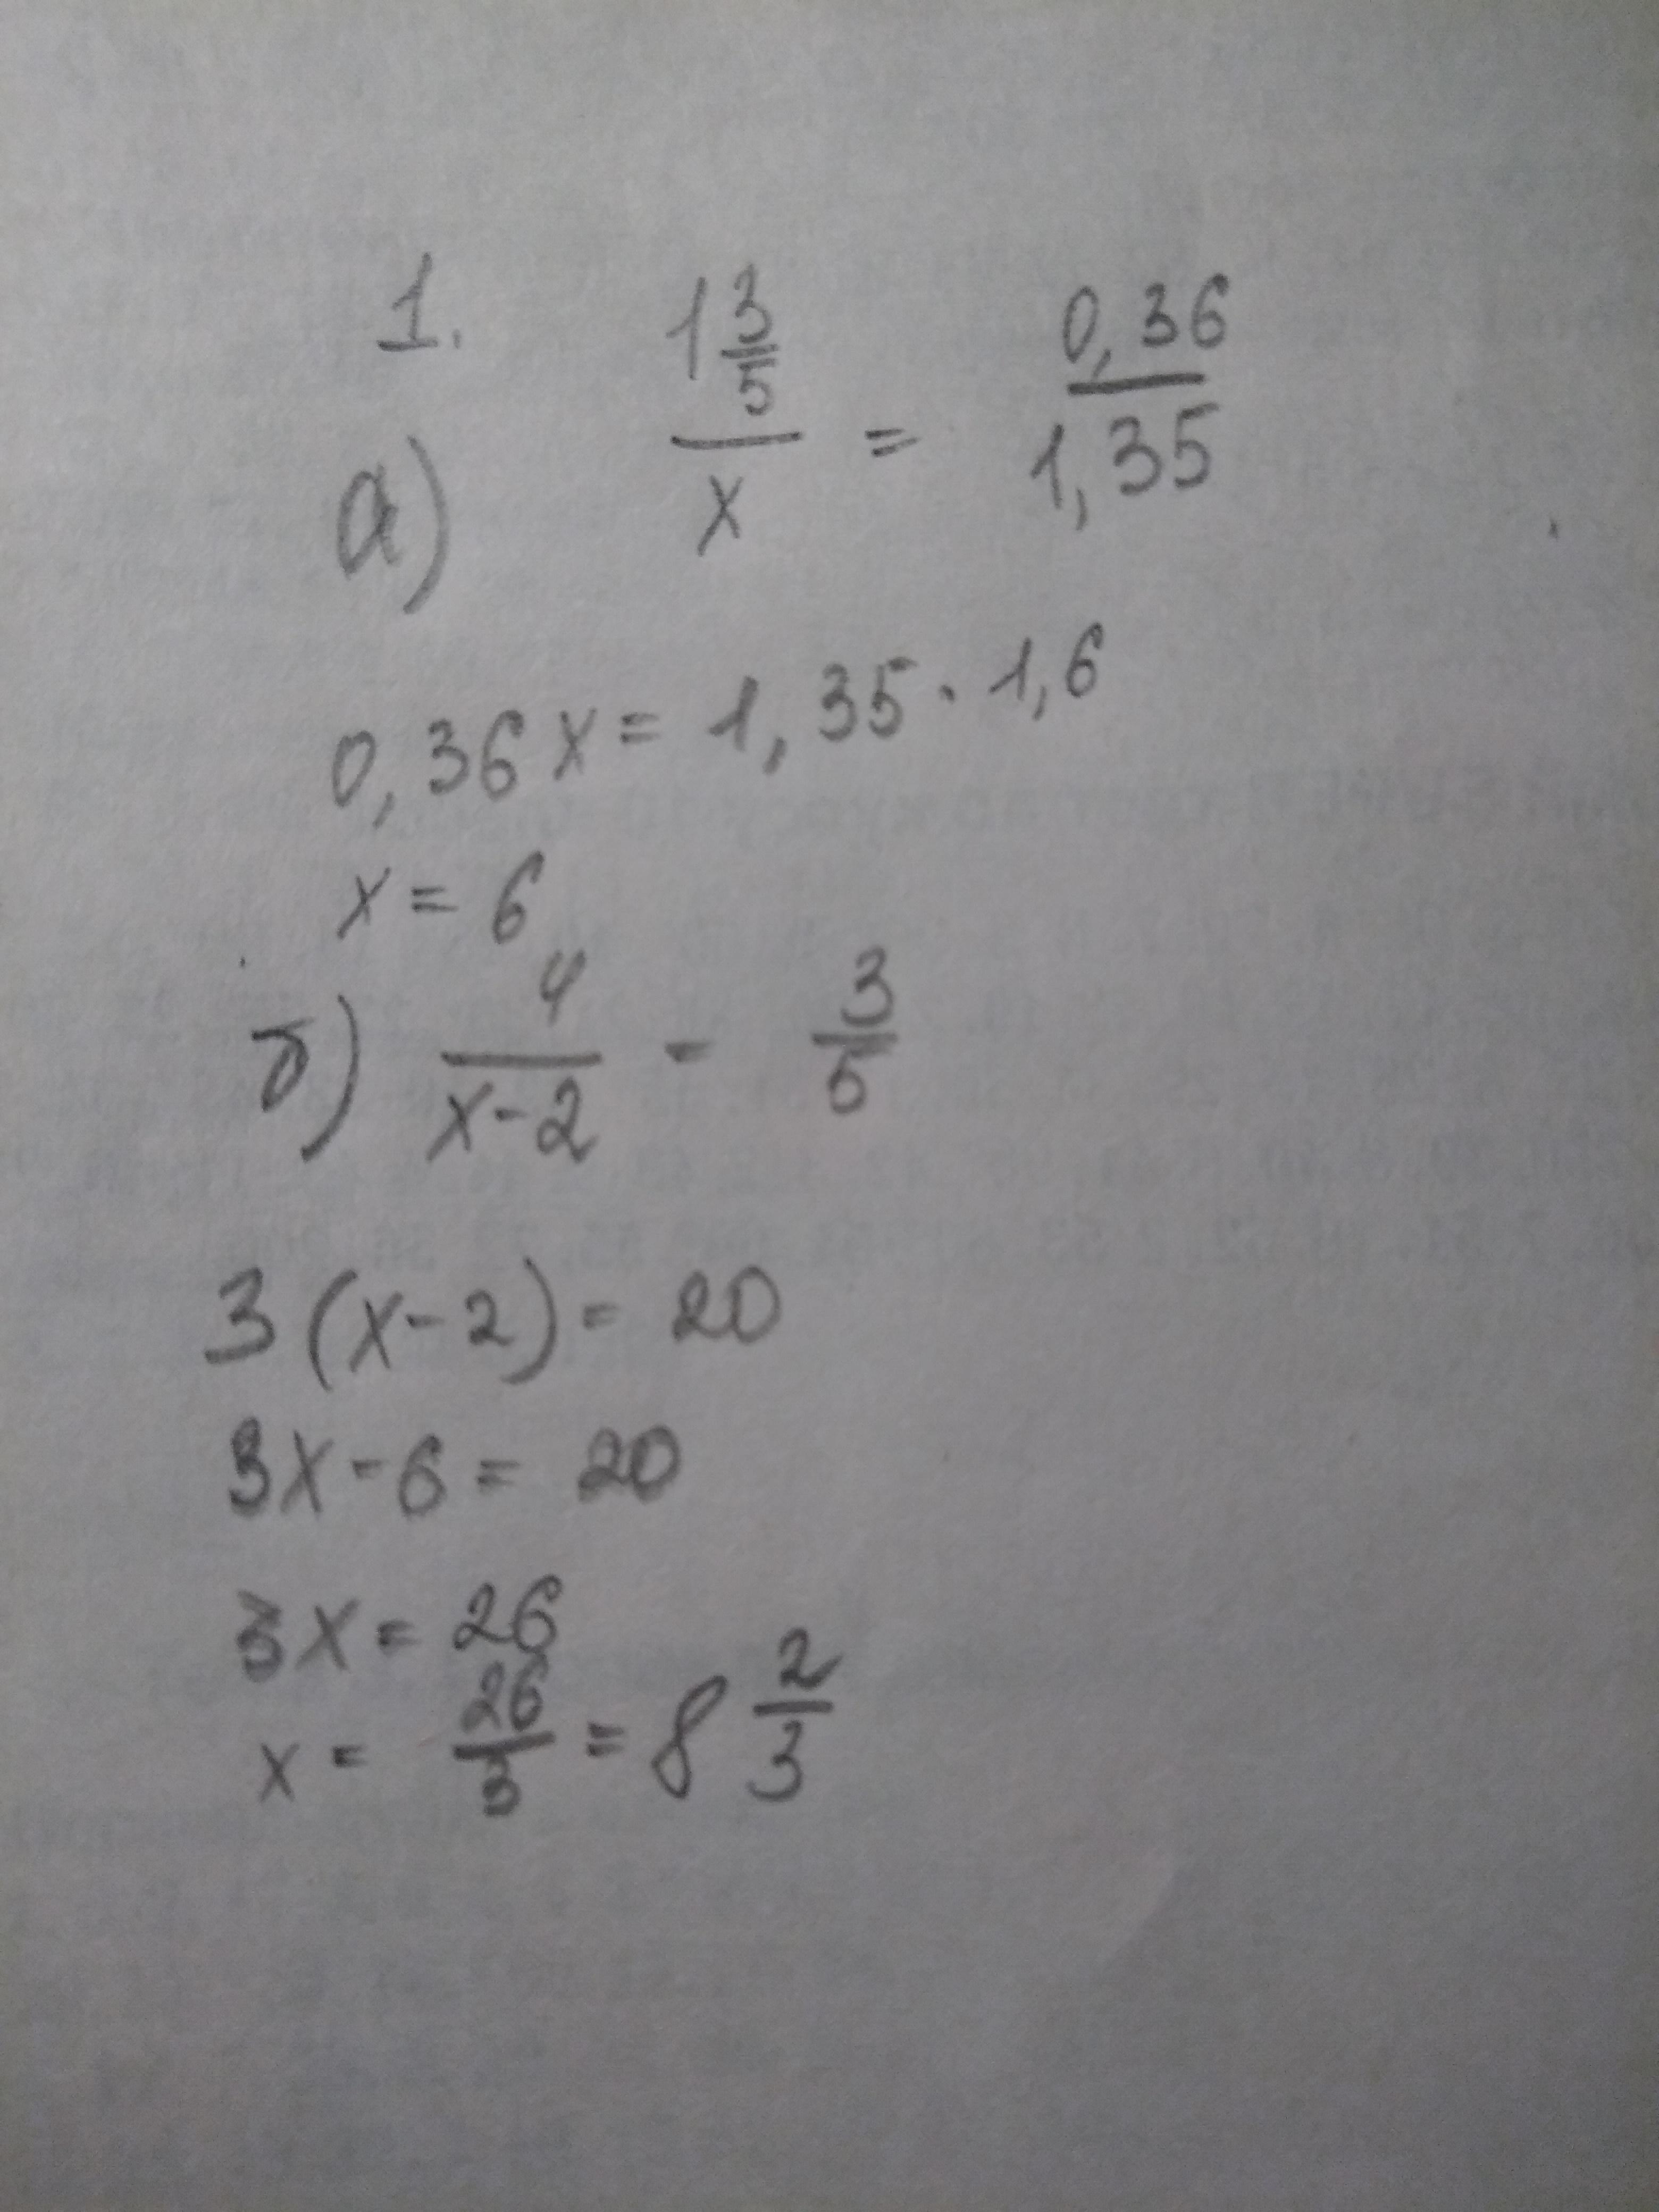 1. 1 3/5 / x = 0,36 / 1,35
а)
0,36x = 1,35 · 1,6
x = 6
б) 4 / x-2 - 3/5
3(x-2) = 20
3x-6 = 20
3x = 26
x = 26/3 = 8 2/3